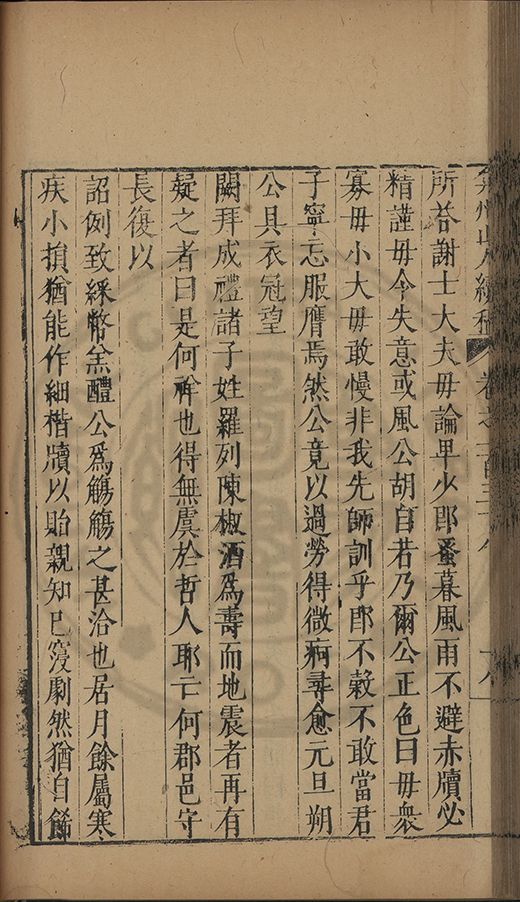 弇州山人續稿 卷之一百三十八 十八
所荅謝士大夫毋論早少郎蚤暮風雨不避赤牘必
精謹毋令失意或風公胡自若乃爾公正色曰毋衆
寡毋小大毋敢慢非我先師訓乎郎不穀不敢當君
子寧忘服膺焉然公竟以過勞得微痾尋愈元旦朔
公具衣冠望
闕拜成禮諸子姓羅列陳椒酒爲壽而地震者再有
疑之者曰是何祥也得無虞於哲人耶亡何郡邑守
長復以
詔例致綵幣羔醴公爲觴觴之甚洽也居月餘屬寒
疾小損猶能作細楷牘以貽親知已寖劇然猶自餙